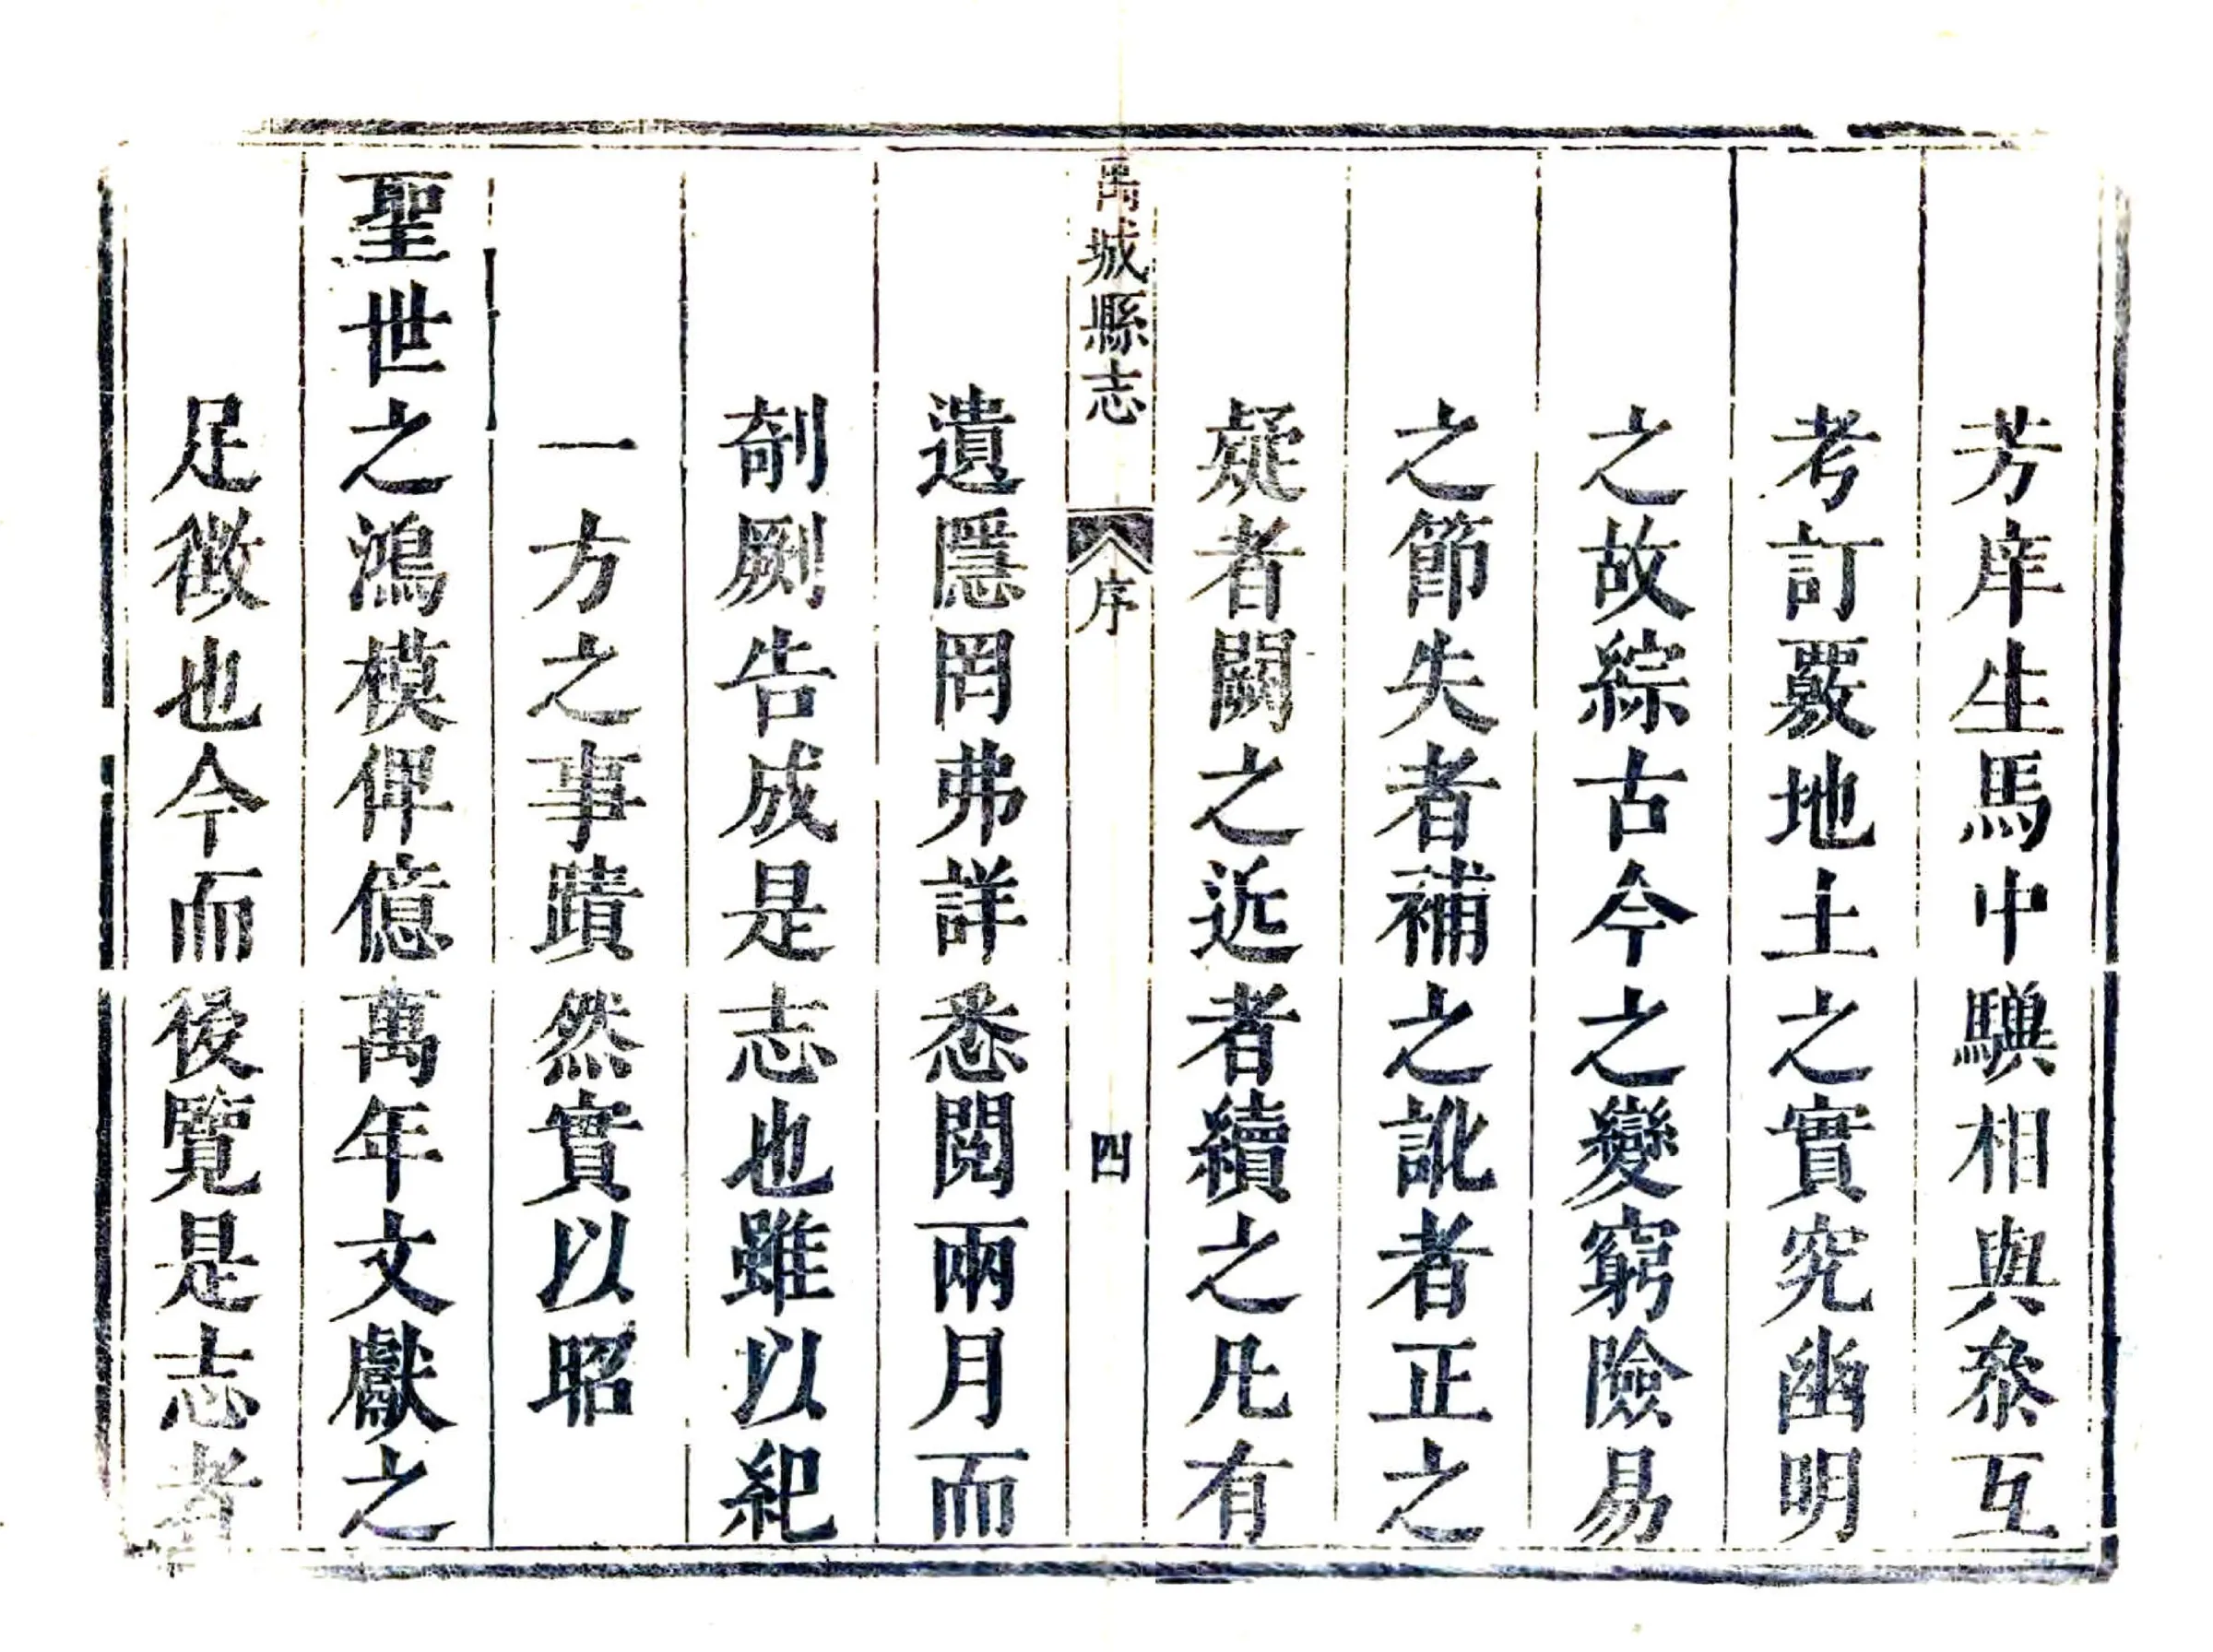 芳庠生馬中驥相與叅互
考訂覈地土之實究幽明
之故綜古今之變窮險易
之節失者補之訛者正之
疑者闕之近者續之凡有
禹城縣志
序
四
遺隱罔弗詳悉閱兩月而
剞劂告成是志也雖以紀
一方之事蹟然實以昭
聖世之鴻模俾億萬年文獻之
足徵也今而後覽是志者